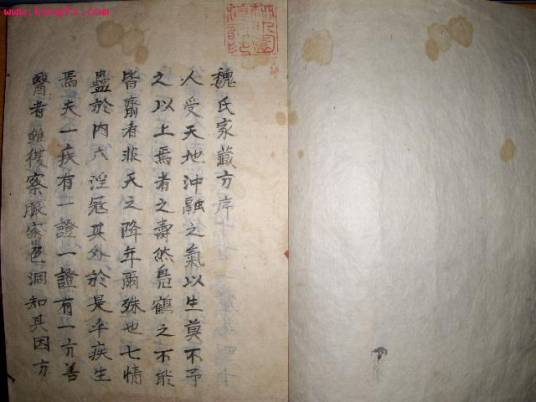 魏氏家藏方序
人受天地沖融之氣以生莫不予
之以上焉者之壽然鳧鶴之不能
皆齊者非天之降年爾殊也七情
蠱於內六淫寇其外於是乎疾生
焉夫一疾有一證一證有一方善
醫者雖復察厥家色洞知其因方